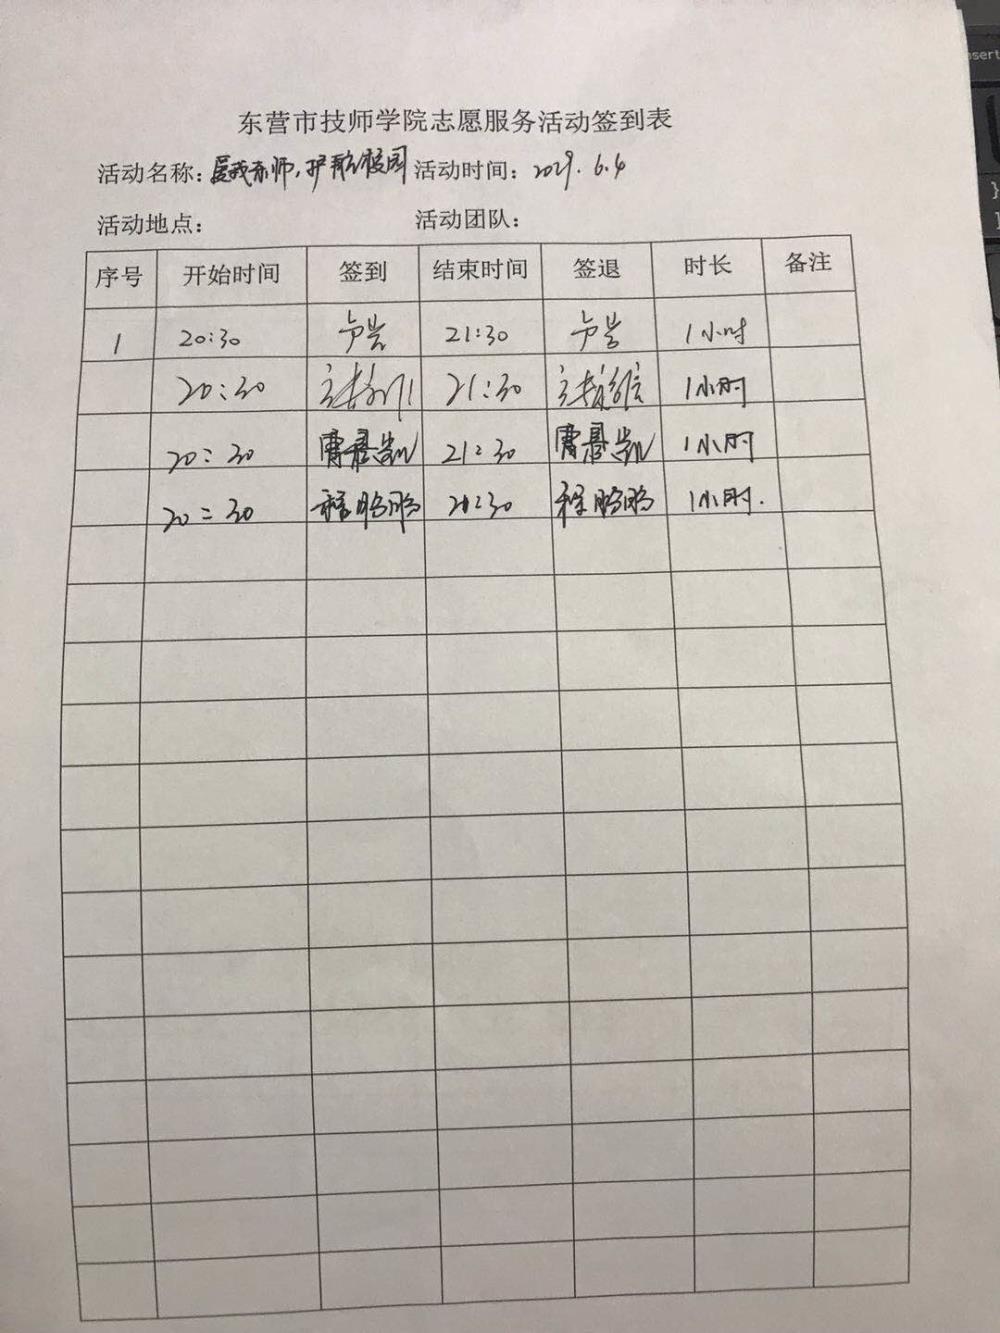 东营市技师学院志愿服务活动签到表
活动名称: 爱我东师, 护航校园 活动时间: 2029. 6.4
活动地点: 活动团队:
序号 开始时间 签到 结束时间 签退 时长 备注
1 20:30 21:30 1小时
20:30 21:30 1小时
20:30 21:30 1小时
20:30 程鹏鹏 21:30 程鹏鹏 1小时.